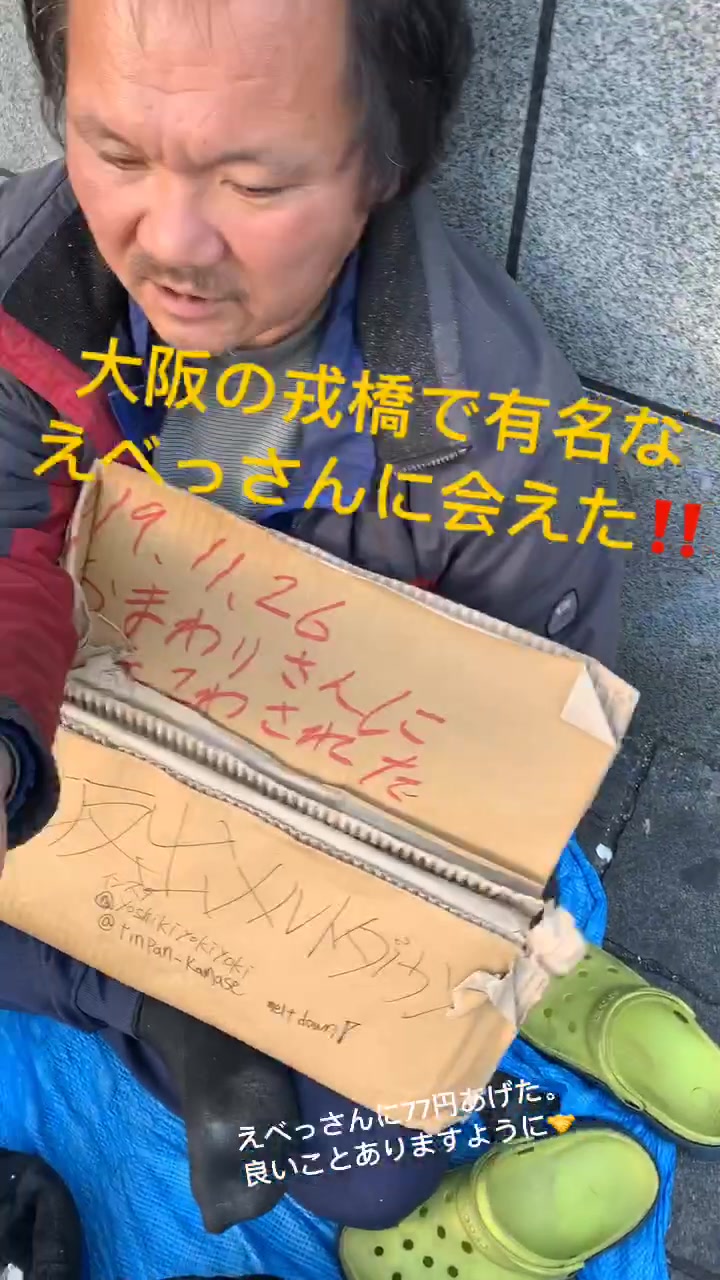 大阪の戎橋で有名な
えべっさんに会えた‼️
19.11.26
おまわりさんに
わされた
メルトダウン
インスタ
@yoshikiyokiyoki
@tinpan-kanase
melt down
えべっさんに77円あげた。
良いことありますように🧡